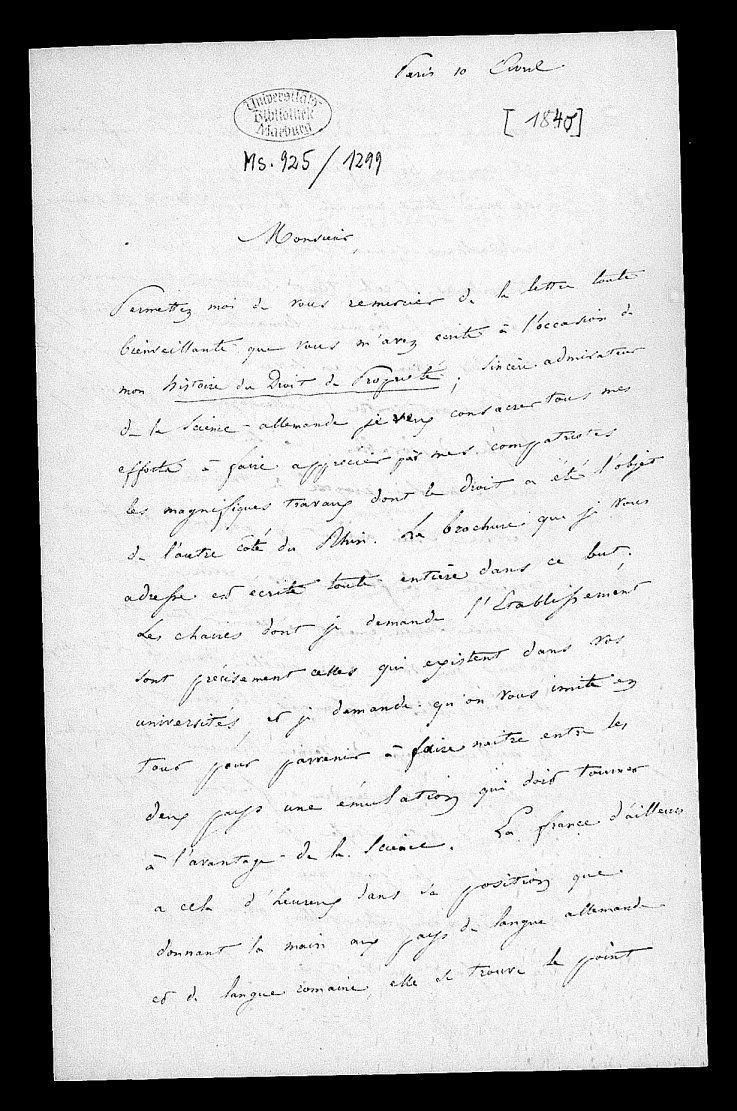 Paris 10 Avril
[1840]
Universitäts-
Bibliothek
Marburg
Ms. 925/1299
Monsieur
Permettez moi de vous remercier de la lettre toute
bienveillante que vous m'avez ecrite à l'occasion de
mon histoire du Droit de Propriété ; sincère admirateur
de la Science allemande je veux consacrer tous mes
efforts à faire apprécier par mes compatriotes
les magnifiques travaux dont le droit a été l'objet
de l'autre coté du Rhin. La brochure que je vous
adresse est ecrite toute entière dans ce but.
Les chaires dont je demande l'Etablissement
sont précisement celles qui existent dans vos
universités, et je demande qu'on vous imite en
tout pour parvenir à faire naitre entre les
deux pays une émulation qui doit tourner
à l'avantage de la Science. La france d'ailleurs
a cela d'heureux dans sa position que
donnant la main aux pays de langue allemande
et de langue romaine, elle se trouve le point